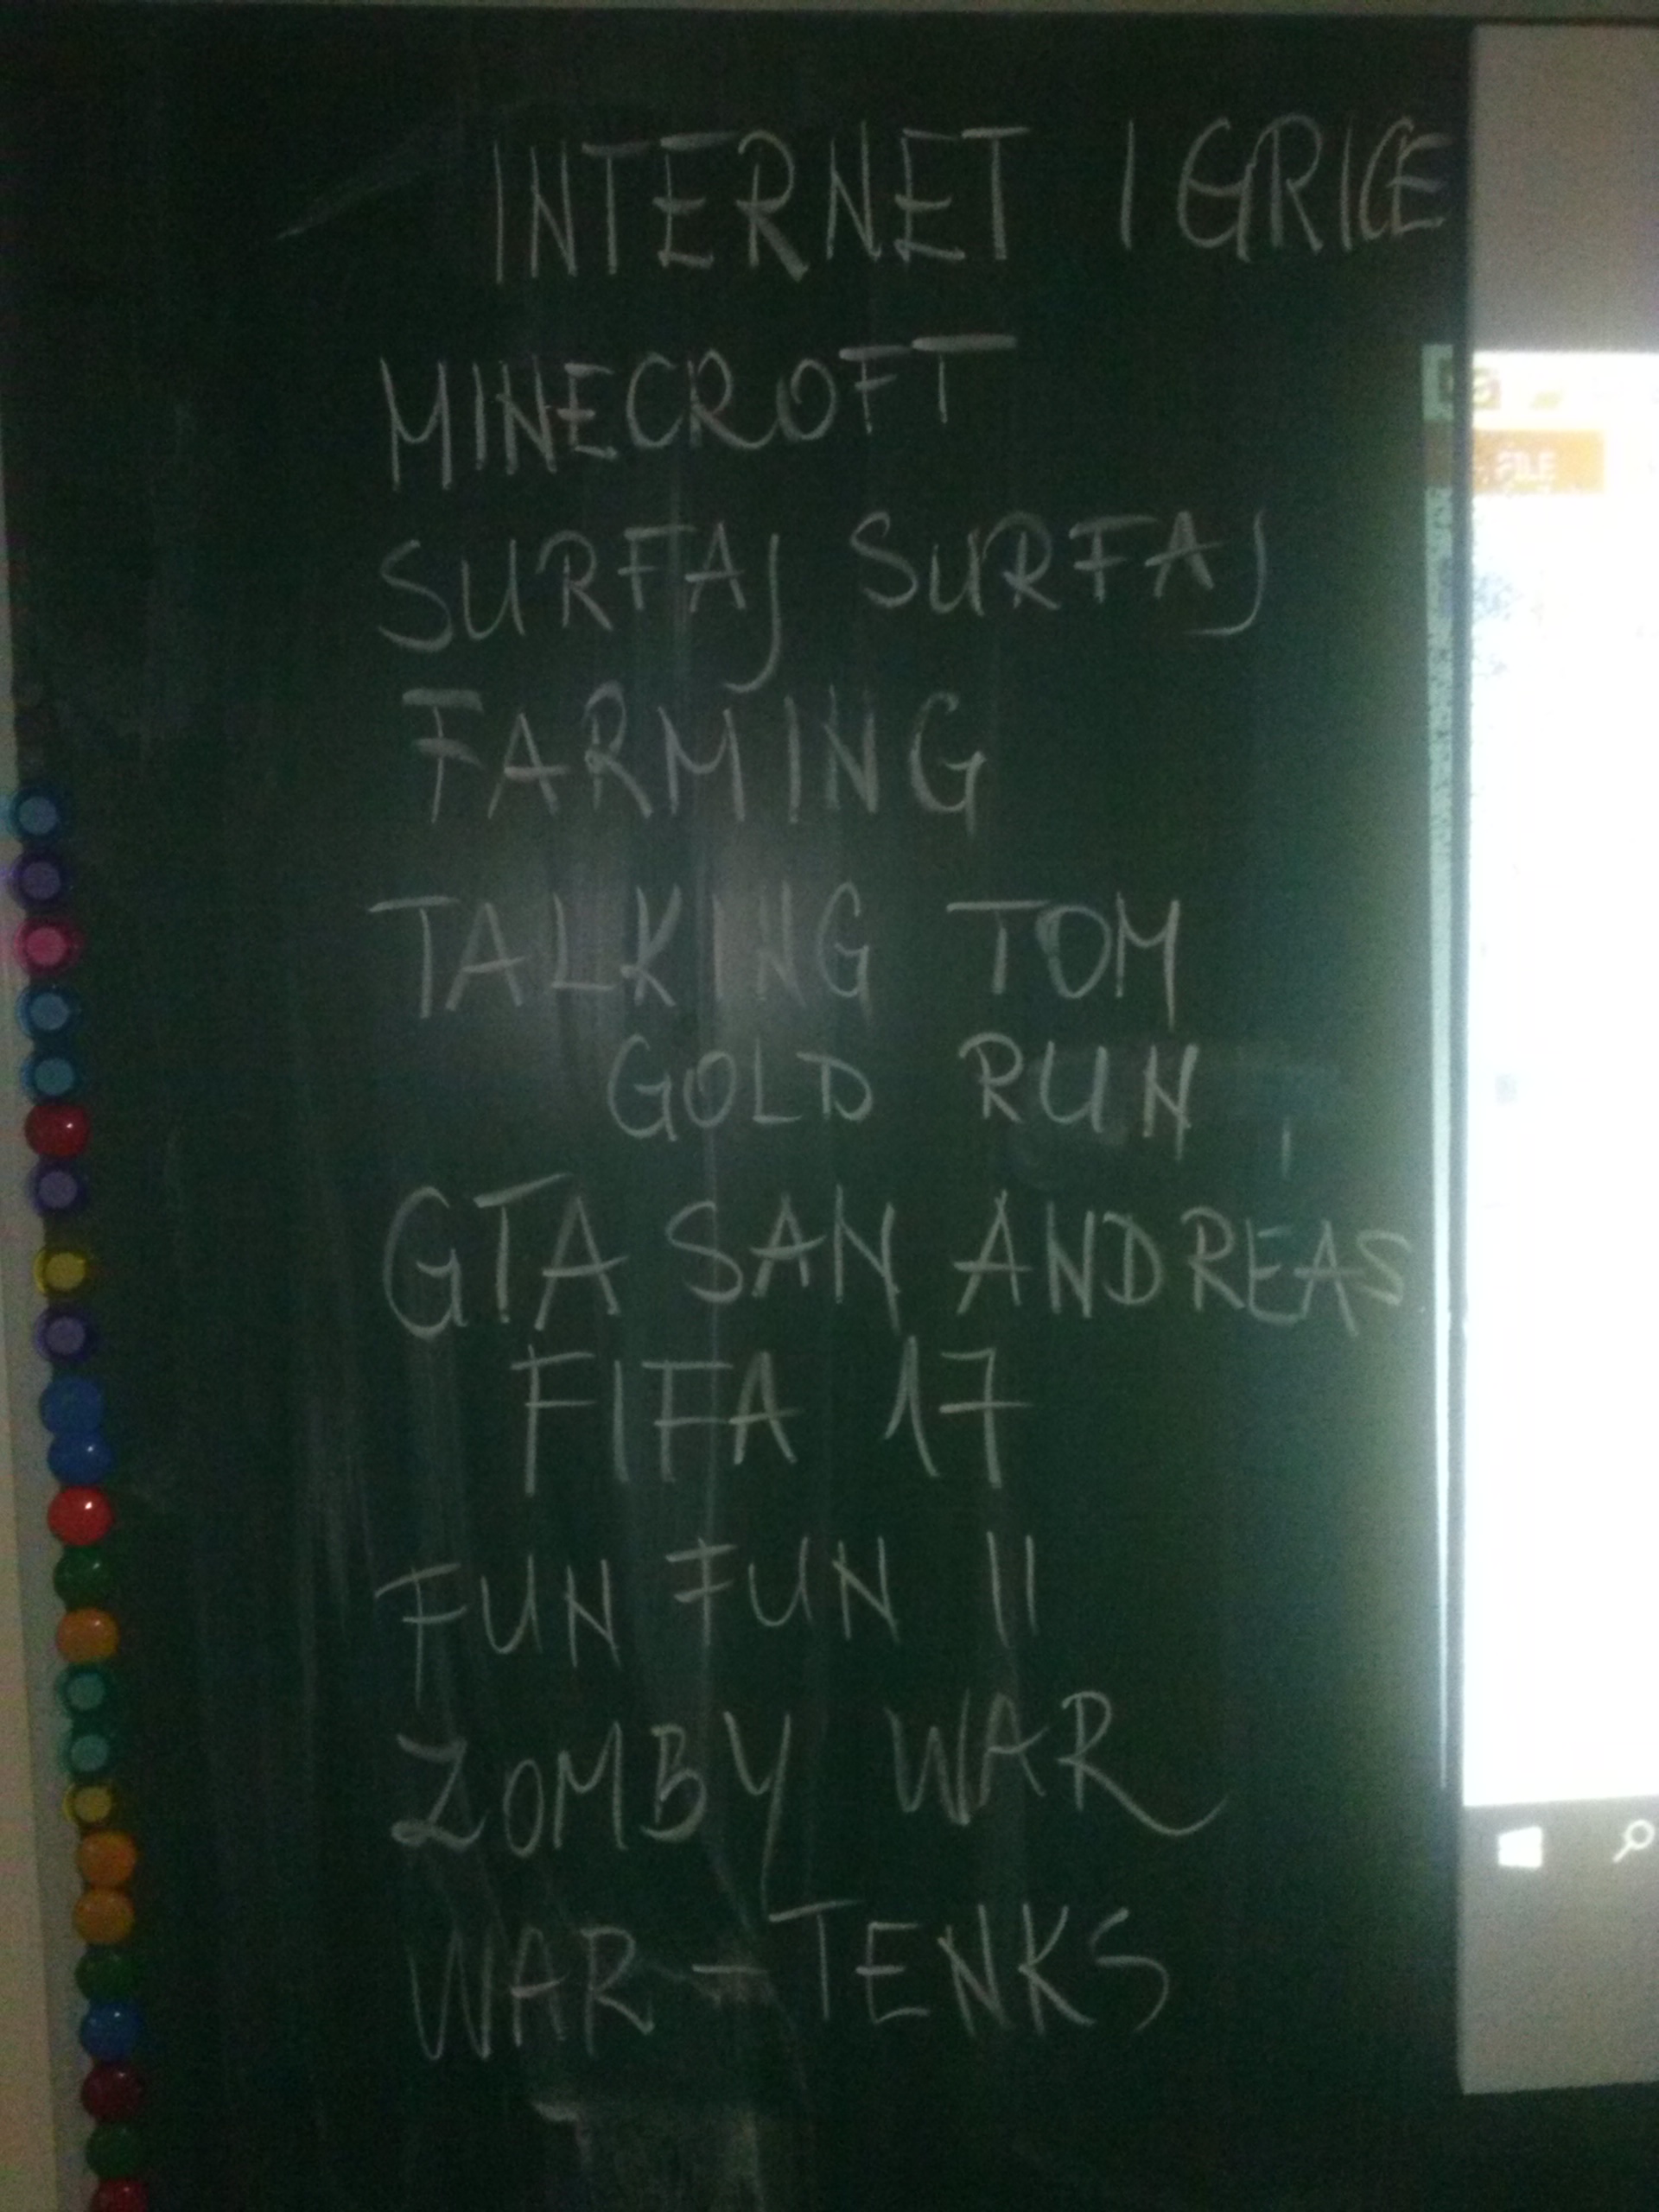 INTERNET IGRICE
MINECROFT
SURFAJ SURFAJ
FARMING
TALKING TOM
GOLD RUN
GTA SAN ANDREAS
FIFA 17
FUN FUN II
ZOMBY WAR
WAR-TENKS
FILE